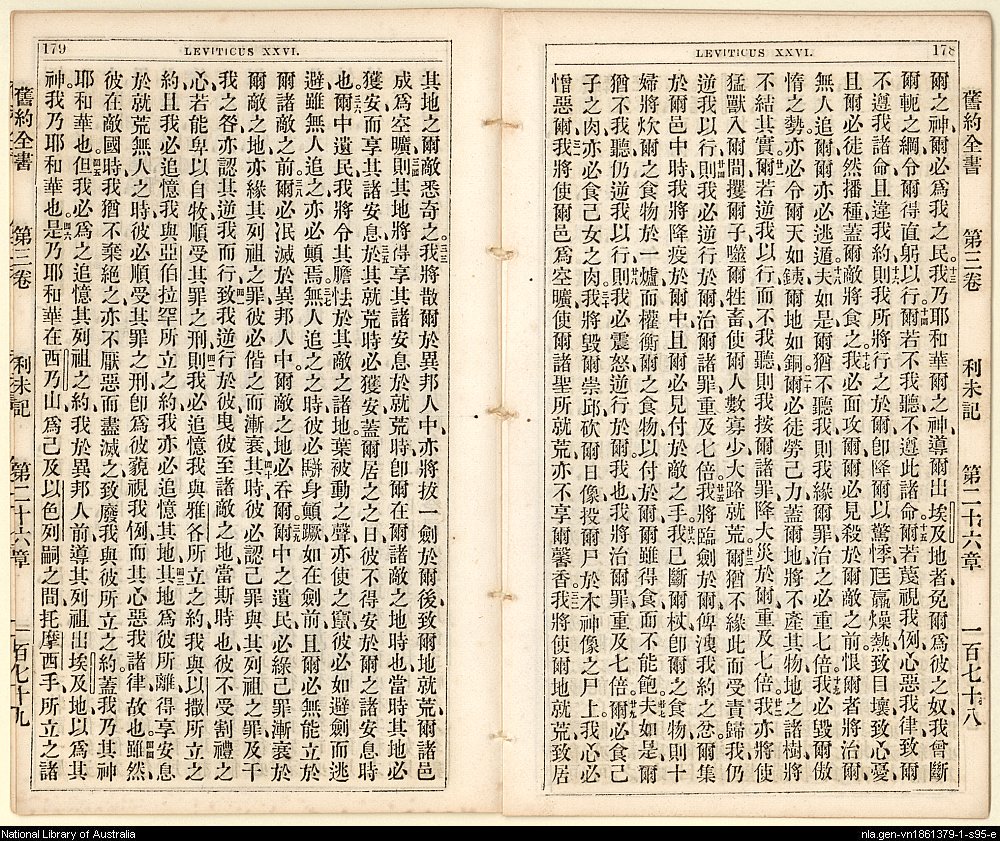 LEVITICUS XXVI.
178
舊約全書 第三卷 利未記 第二十六章 一百七十八
爾之神、爾必爲我之民。十三我乃耶和華爾之神、導爾出埃及地者、免爾爲彼之奴、我曾斷
爾軛之綱、令爾得直躬以行。十四爾若不我聽、不遵此諸命、十五爾若蔑視我例、心惡我律、致爾
不遵我諸命、且違我約、十六則我所將行之於爾、卽降爾以驚悸、尫羸、燥熱、致目壞、致心憂、
且爾必徒然播種、蓋爾敵將食之。十七我必面攻爾、爾必見殺於爾敵之前、恨爾者將治爾、
無人追爾、爾亦必逃遁。十八夫如是爾猶不聽我、則我緣爾罪治之、必重七倍。十九我必毀爾傲
惰之勢、亦必令爾天如鐵、爾地如銅。二十爾必徒勞己力、蓋爾地將不產其物、地之諸樹將
不結其實。廿一爾若逆我以行、而不我聽、則我按爾諸罪、降大災於爾、重及七倍。廿二我亦將使
猛獸入爾間、攫爾子、噬爾牲畜、使爾人數寡少、大路就荒。廿三爾猶不緣此而受責歸我、仍
逆我以行、廿四則我必逆行於爾、治爾諸罪、重及七倍。廿五我將臨劍於爾、俾洩我約之忿、爾集
於爾邑中時、我將降疫於爾中、且爾必見付於敵之手。廿六我已斷爾杖卽爾之食物、則十
婦將炊爾之食物於一爐、而權衡爾之食物、以付於爾、爾雖得食而不能飽。廿七夫如是爾
猶不我聽、仍逆我以行、廿八則我必震怒逆行於爾、我也我將治爾罪、重及七倍。廿九爾必食己
子之肉、亦必食己女之肉。三十我將毀爾崇邱、砍爾日像、投爾尸於木神像之尸上、我心必
憎惡爾。三一我將使爾邑爲空曠、使爾諸聖所就荒、亦不享爾馨香。三二我將使爾地就荒、致居
179
LEVITICUS XXVI.
其地之爾敵悉奇之。三三我將散爾於異邦人中、亦將拔一劍於爾後、致爾地就荒、爾諸邑
成爲空曠。三四則其地將得享其諸安息於就荒時、卽爾在爾諸敵之地時也、當時其地必
獲安而享其諸安息。三五於其就荒時必獲安、蓋爾居之之日、彼不得安於爾之諸安息時
也。三六爾中遺民、我將令其膽怯於其敵之諸地、葉被動之聲、亦使之竄、彼必如避劍而逃
避、雖無人追之、亦必顛焉。三七無人追之之時、彼必駢身顛蹶、如在劍前、且爾必無能立於
爾諸敵之前。三八爾必泯滅於異邦人中、爾敵之地必吞爾。三九爾中之遺民、必緣己罪漸衰於
爾敵之地、亦緣其列祖之罪、彼必偕之而漸衰。四十其時彼必認己罪、與其列祖之罪、及干
我之咎、亦認其逆我而行、四一致我逆行於彼、曳彼至諸敵之地、當斯時也、彼不受割禮之
心、若能卑以自牧、順受其罪之刑、四二則我必追憶我與雅各所立之約、我與以撒所立之
約、且我必追憶我與亞伯拉罕所立之約、我亦必追憶其地。四三其地爲彼所離、得享安息
於就荒無人之時、彼必順受其罪之刑、卽爲彼藐視我例、而其心惡我諸律故也。四四雖然、
彼在敵國時、我猶不棄絕之、亦不厭惡而盡滅之、致廢我與彼所立之約、蓋我乃其神
耶和華也。四五但我必爲之追憶其列祖之約、我於異邦人前、導其列祖出埃及地、以爲其
神、我乃耶和華也。四六是乃耶和華在西乃山、爲己及以色列嗣之間、托摩西手、所立之諸
舊約全書 第三卷 利未記 第二十六章 一百七十九
National Library of Australia
nla.gen-vn1861379-1-s95-e